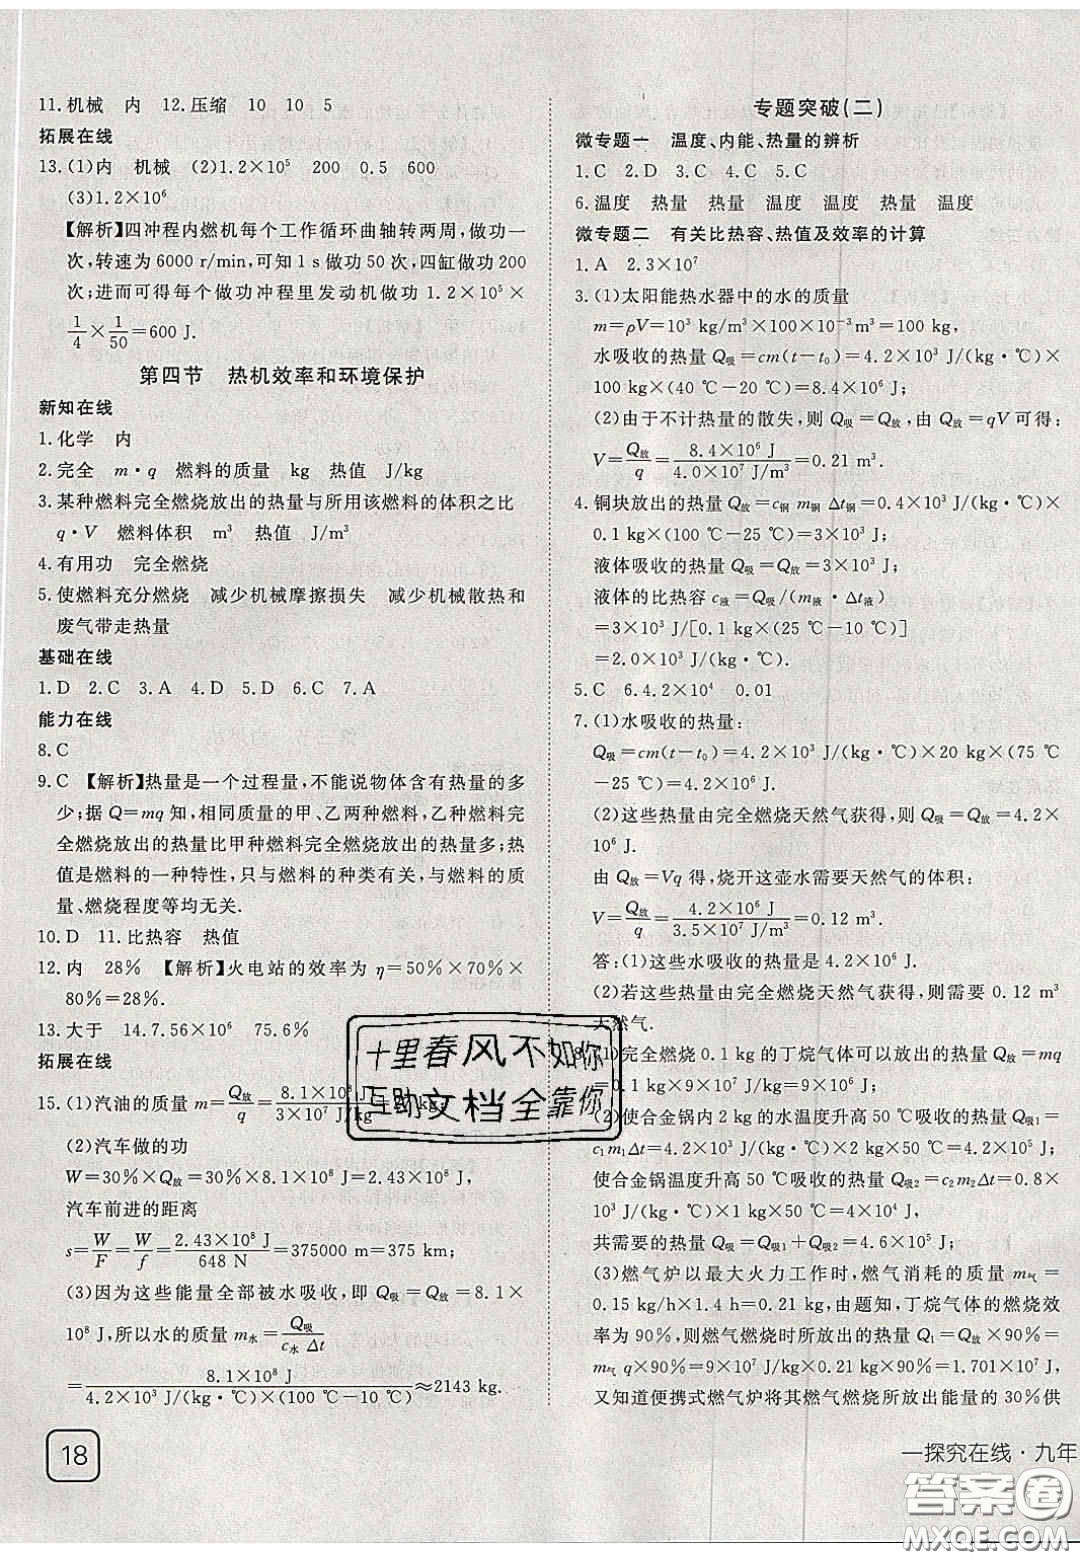 11.机械　内　12.压缩　10　10　5
拓展在线
13.(1)内　机械　(2)1.2×10⁵　200　0.5　600
(3)1.2×10⁶
【解析】四冲程内燃机每个工作循环曲轴转两周,做功一
次,转速为6000 r/min,可知1 s做功50次,四缸做功200
次;进而可得每个做功冲程里发动机做功1.2×10⁵×
1/4×1/50=600 J.
第四节　热机效率和环境保护
新知在线
1.化学　内
2.完全　m·q　燃料的质量　kg　热值　J/kg
3.某种燃料完全燃烧放出的热量与所用该燃料的体积之比
q·V　燃料体积　m³　热值　J/m³
4.有用功　完全燃烧
5.使燃料充分燃烧　减少机械摩擦损失　减少机械散热和
废气带走热量
基础在线
1.D　2.C　3.A　4.D　5.D　6.C　7.A
能力在线
8.C
9.C　【解析】热量是一个过程量,不能说物体含有热量的多
少;据Q=mq知,相同质量的甲、乙两种燃料,乙种燃料完
全燃烧放出的热量比甲种燃料完全燃烧放出的热量多;热
值是燃料的一种特性,只与燃料的种类有关,与燃料的质
量、燃烧程度等均无关.
10.D　11.比热容　热值
12.内　28%　【解析】火电站的效率为η=50%×70%×
80%=28%.
13.大于　14.7.56×10⁶　75.6%
拓展在线
15.(1)汽油的质量m=Q放/q=8.1×10⁸ J/3×10⁷ J/kg=27 kg.
(2)汽车做的功
W=30%×Q放=30%×8.1×10⁸ J=2.43×10⁸ J,
汽车前进的距离
s=W/F=W/f=2.43×10⁸ J/648 N=375000 m=375 km;
(3)因为这些能量全部被水吸收,则Q吸=Q放=8.1×
10⁸ J,所以水的质量m水=Q吸/c水 Δt
=8.1×10⁸ J/4.2×10³ J/(kg·℃)×(100 ℃-10 ℃)≈2143 kg.
18
专题突破(二)
微专题一　温度、内能、热量的辨析
1.C　2.D　3.C　4.C　5.C
6.温度　热量　热量　温度　温度　热量　温度
微专题二　有关比热容、热值及效率的计算
1.A　2.3×10⁷
3.(1)太阳能热水器中的水的质量
m=ρV=10³ kg/m³×100×10⁻³m³=100 kg,
水吸收的热量Q吸=cm(t-t₀)=4.2×10³ J/(kg·℃)×
100 kg×(40 ℃-20 ℃)=8.4×10⁶ J;
(2)由于不计热量的散失,则Q吸=Q放,由Q放=qV可得:
V=Q放/q=8.4×10⁶ J/4.0×10⁷ J/m³=0.21 m³.
4.铜块放出的热量Q放=c铜 m铜 Δt铜=0.4×10³ J/(kg·℃)×
0.1 kg×(100 ℃-25 ℃)=3×10³ J;
液体吸收的热量Q吸=Q放=3×10³ J;
液体的比热容c液=Q吸/(m液·Δt液)
=3×10³ J/[0.1 kg×(25 ℃-10 ℃)]
=2.0×10³ J/(kg·℃).
5.C　6.4.2×10⁴　0.01
7.(1)水吸收的热量:
Q吸=cm(t-t₀)=4.2×10³ J/(kg·℃)×20 kg×(75 ℃
-25 ℃)=4.2×10⁶ J.
(2)这些热量由完全燃烧天然气获得,则Q放=Q吸=4.2×
10⁶ J.
由Q放=Vq得,烧开这壶水需要天然气的体积:
V=Q放/q=4.2×10⁶ J/3.5×10⁷ J/m³=0.12 m³.
答:(1)这些水吸收的热量是4.2×10⁶ J.
(2)若这些热量由完全燃烧天然气获得,则需要0.12 m³
天然气.
(1)完全燃烧0.1 kg的丁烷气体可以放出的热量Q放=mq
(2)使合金锅内2 kg的水温度升高50 ℃吸收的热量Q吸1=
c₁m₁Δt=4.2×10³ J/(kg·℃)×2 kg×50 ℃=4.2×10⁵ J;
使合金锅温度升高50 ℃吸收的热量Q吸2=c₂m₂Δt=0.8×
10³ J/(kg·℃)×1 kg×50 ℃=4×10⁴ J,
共需要的热量Q吸=Q吸1+Q吸2=4.6×10⁵ J;
(3)燃气炉以最大火力工作时,燃气消耗的质量m气=
0.15 kg/h×1.4 h=0.21 kg,由题知,丁烷气体的燃烧效
率为90%,则燃气燃烧时所放出的热量Q₁=Q放×90%=
m气 q×90%=9×10⁷ J/kg×0.21 kg×90%=1.701×10⁷ J
又知道便携式燃气炉将其燃气燃烧所放出能量的30%供
一探究在线·九年
十里春风不如你
互助文档全靠你
答案圈
MXQE.COM